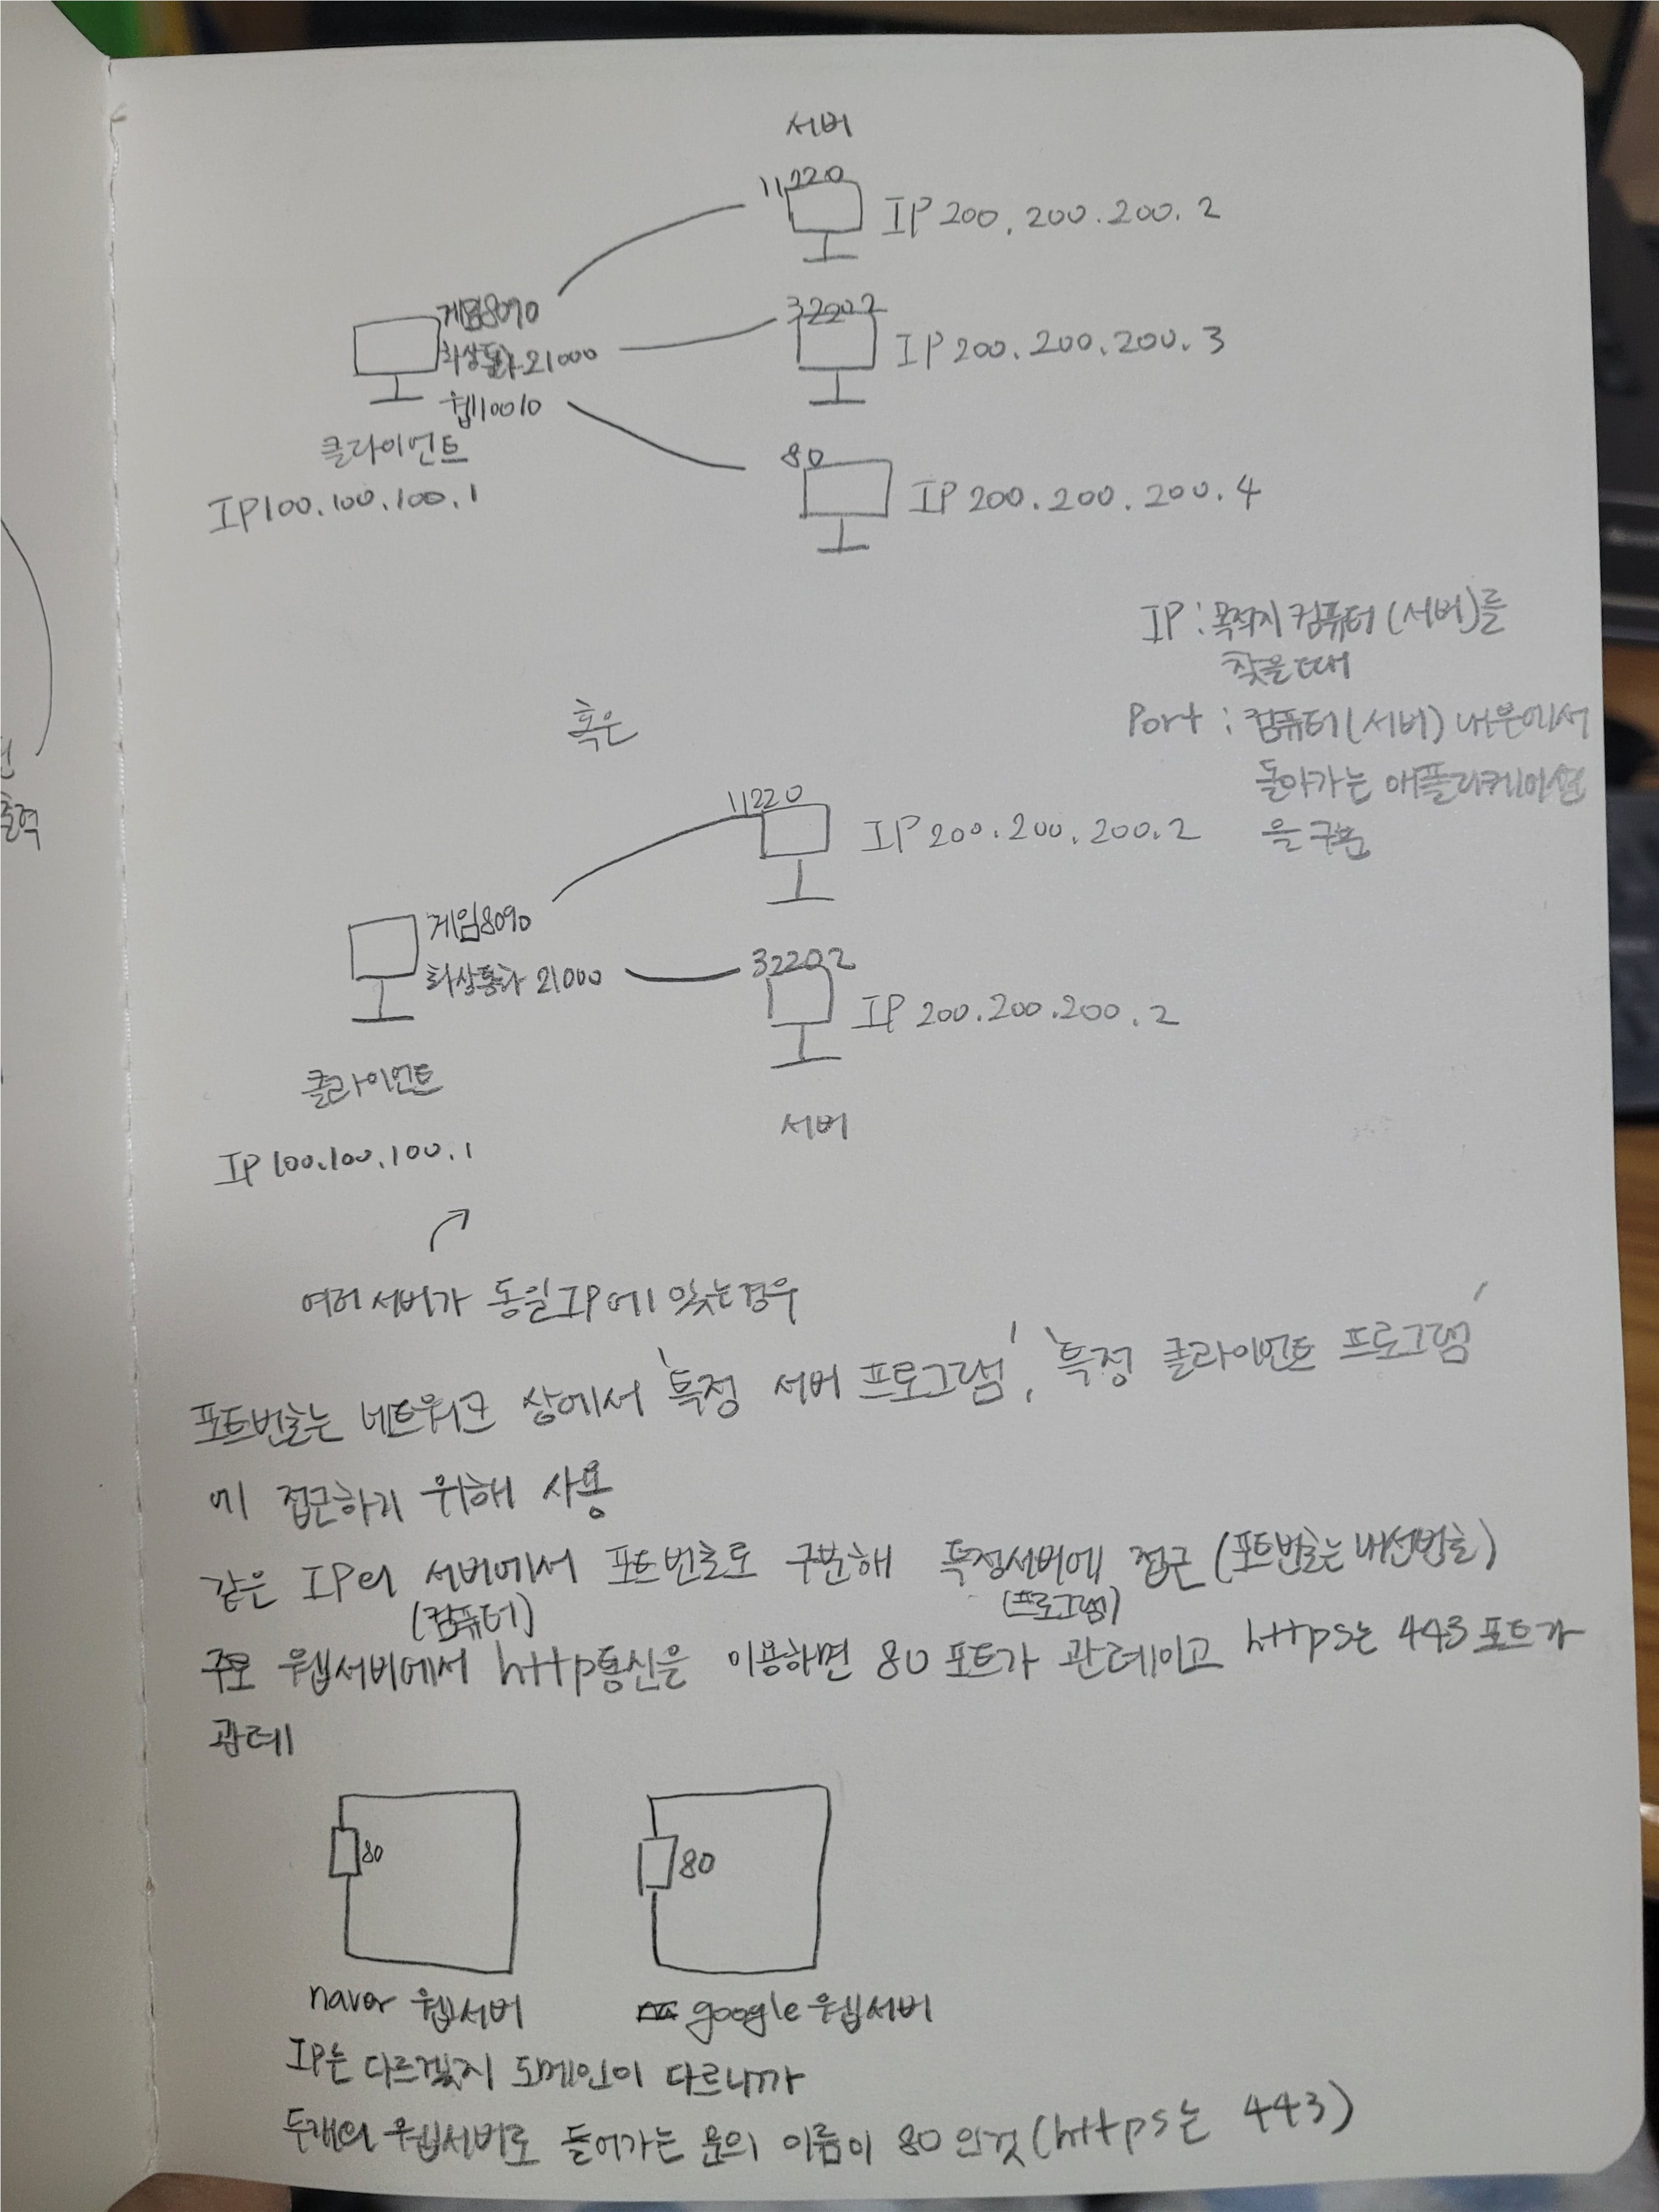 서버
11220
IP 200.200.200.2
게임8090
32202
화상통화 21000
IP 200.200.200.3
웹10010
80
클라이언트
IP 200.200.200.4
IP100.100.100.1
IP : 목적지 컴퓨터 (서버)를
찾을때
혹은
Port : 컴퓨터(서버) 내부에서
돌아가는 애플리케이션
을 구분
11220
IP 200.200.200.2
게임8090
32202
화상통화 21000
IP 200.200.200.2
클라이언트
서버
IP 100.100.100.1
여러 서버가 동일IP에 있는경우
포트번호는 네트워크 상에서 '특정 서버 프로그램', '특정 클라이언트 프로그램'
에 접근하기 위해 사용
같은 IP의 서버에서 포트번호로 구분해 특정서버에 접근 (포트번호는 내선번호)
(컴퓨터) (프로그램)
주로 웹서버에서 http통신을 이용하면 80 포트가 관례이고 https는 443 포트가
관례
80
80
naver 웹서버
google 웹서버
IP는 다르겠지 도메인이 다르니까
두개의 웹서버로 들어가는 문의 이름이 80 인것 (https는 443)
출력